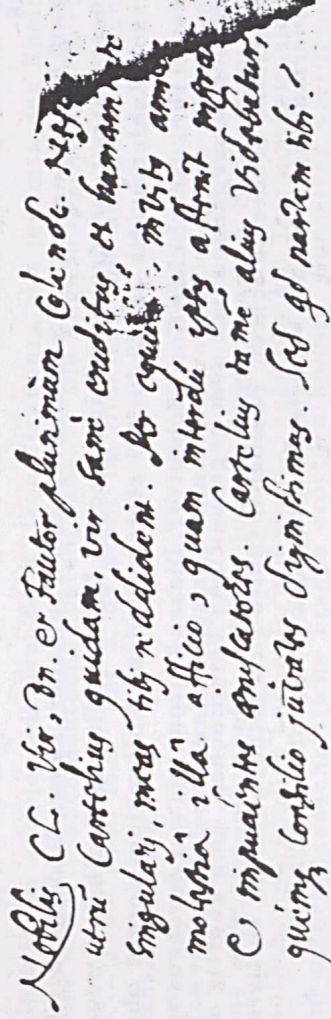 Nobilis CL. Vir, Dn. et Fautor plurimùm Colende. Nes
utrũ Cartelius quidam, vir sanè eruditus, et humanit
singularj, meas tibj reddiderit. invitus
molestiâ illâ afficio, quam interdũ ipsis afferunt
et impudentes Cartelius tamē alius videbatur,
quémq consilio juvares dignissimus. Sed ad partem tibi?